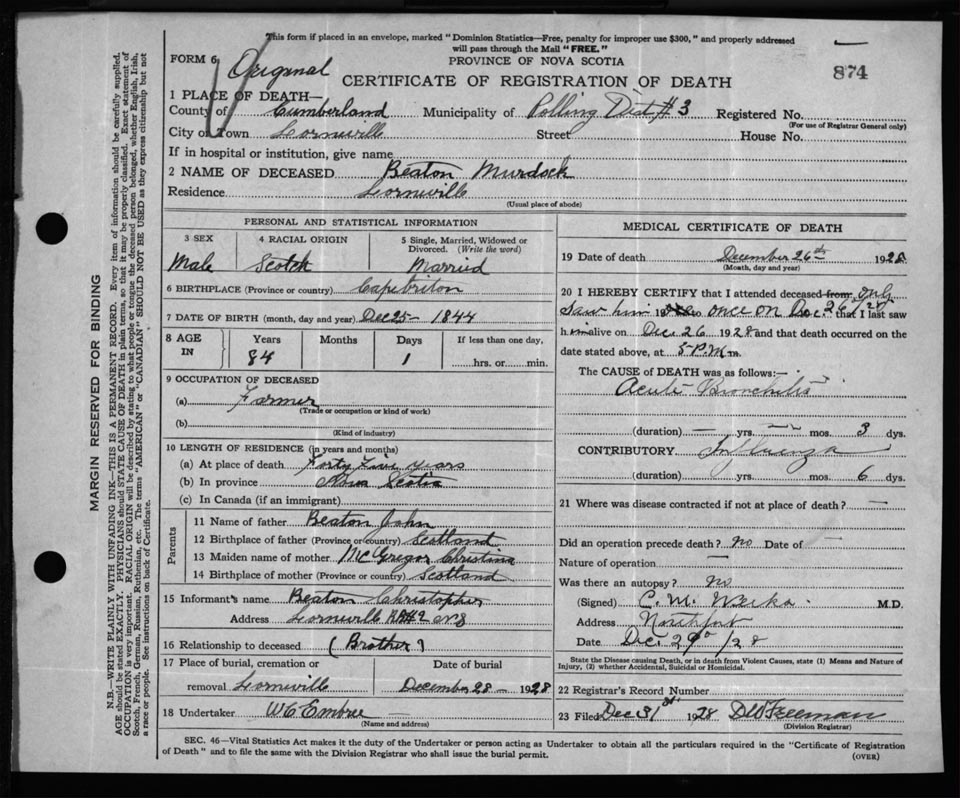 This form if placed in an envelope, marked "Dominion Statistics—Free, penalty for improper use $300," and properly addressed
will pass through the Mail "FREE."
FORM 6
Original
PROVINCE OF NOVA SCOTIA
CERTIFICATE OF REGISTRATION OF DEATH
874
1 PLACE OF DEATH—
County of Cumberland Municipality of Polling Dist # 3 Registered No.
(For use of Registrar General only)
City or Town Lorneville Street House No.
If in hospital or institution, give name
2 NAME OF DECEASED Beaton Murdock
Residence Lornville
(Usual place of abode)
PERSONAL AND STATISTICAL INFORMATION
3 SEX 4 RACIAL ORIGIN 5 Single, Married, Widowed or Divorced. (Write the word)
Male Scotch Married
6 BIRTHPLACE (Province or country) Cape briton
7 DATE OF BIRTH (month, day and year) Dec 25 - 1844
8 AGE IN Years Months Days If less than one day,
84 1 hrs. or min.
9 OCCUPATION OF DECEASED
(a) Farmer
(Trade or occupation or kind of work)
(b)
(Kind of industry)
10 LENGTH OF RESIDENCE (in years and months)
(a) At place of death Forty Five years
(b) In province Nova Scotia
(c) In Canada (if an immigrant)
Parents
11 Name of father Beaton John
12 Birthplace of father (Province or country) Scotland
13 Maiden name of mother McGregor Christina
14 Birthplace of mother (Province or country) Scotland
15 Informant's name Beaton Christopher
Address Lornville NS
16 Relationship to deceased (Brother)
17 Place of burial, cremation or Date of burial
removal Lornville December 28 - 1928
18 Undertaker W C Embree
(Name and address)
MEDICAL CERTIFICATE OF DEATH
19 Date of death December 26th 1928
(Month, day and year)
20 I HEREBY CERTIFY that I attended deceased from, only
saw him once on Dec. 26/28 that I last saw
him alive on Dec. 26 1928 and that death occurred on the
date stated above, at 5 P.M. m.
The CAUSE of DEATH was as follows:—
Acute Bronchitis
(duration) — yrs. — mos. 3 dys.
CONTRIBUTORY Influenza
(duration) yrs. mos. 6 dys.
21 Where was disease contracted if not at place of death? —
Did an operation precede death? No Date of —
Nature of operation —
Was there an autopsy? No
(Signed) C. M. M.D.
Address
Date Dec. 29 /28
State the Disease causing Death, or in death from Violent Causes, state (1) Means and Nature of
Injury, (2) whether Accidental, Suicidal or Homicidal.
22 Registrar's Record Number
23 Filed Dec 31st 1928 DW Freeman
(Division Registrar)
SEC. 46—Vital Statistics Act makes it the duty of the Undertaker or person acting as Undertaker to obtain all the particulars required in the "Certificate of Registration
of Death" and to file the same with the Division Registrar who shall issue the burial permit.
(OVER)
MARGIN RESERVED FOR BINDING
N.B.—WRITE PLAINLY WITH UNFADING INK—THIS IS A PERMANENT RECORD. Every item of information should be carefully supplied.
AGE should be stated EXACTLY. PHYSICIANS should STATE CAUSE OF DEATH in plain terms, so that it may be properly classified. Exact statement of
OCCUPATION is very important. RACIAL ORIGIN will be described by stating to what people or tongue the deceased person belonged, whether English, Irish,
Scotch, French, German, Russian, Ruthenian, etc. The terms "AMERICAN" or "CANADIAN" SHOULD NOT BE USED as they express citizenship but not
a race or people. See instructions on back of Certificate.